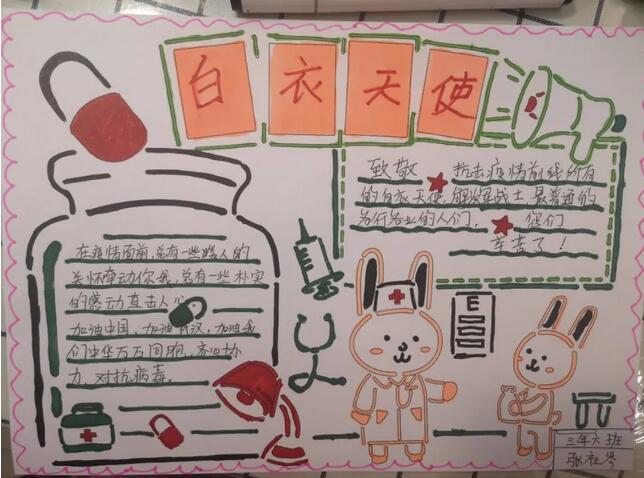 白衣天使
致敬 抗击疫情前线所有
的白衣天使、解放军战士、最普通的
各行各业的人们, 您们
辛苦了!
在疫情面前,总有一些路人的
关怀牵动你我,总有一些朴实
的感动直击人心
加油中国,加油武汉,加油我
们中华万万同胞,齐心协
力,对抗病毒。
E
三年六班
张